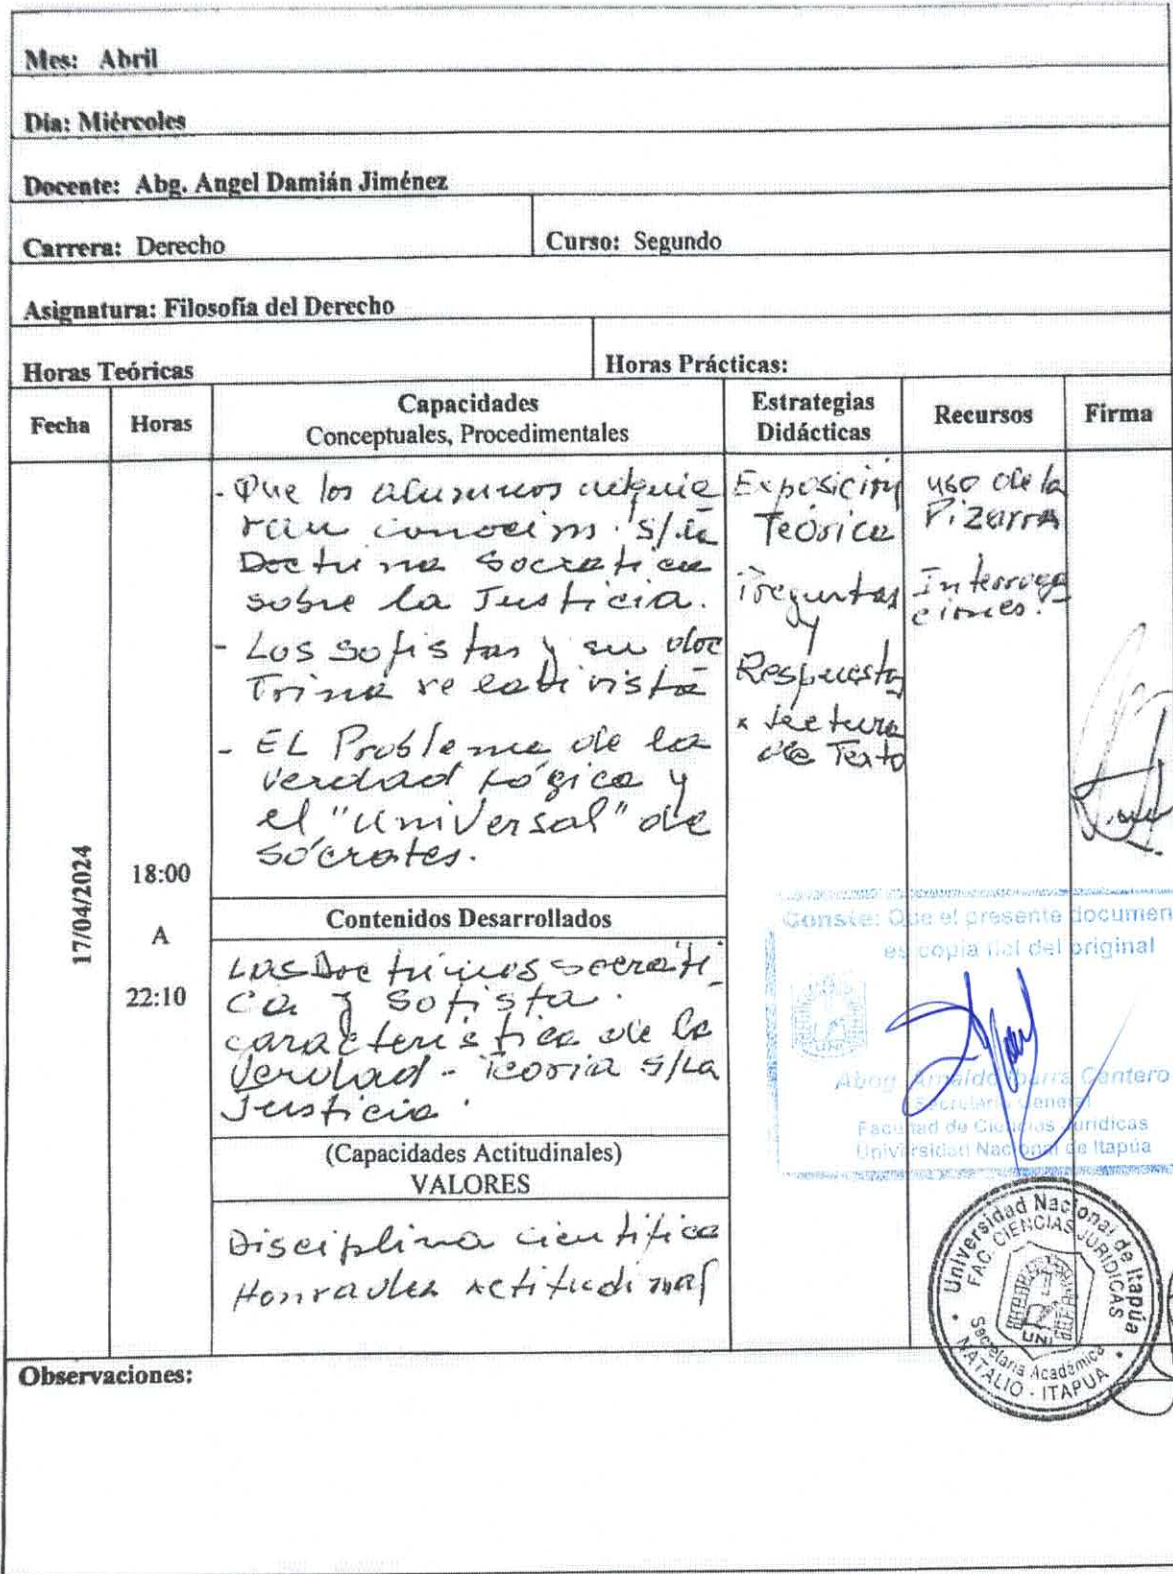 Mes: Abril
Día: Miércoles
Docente: Abg. Angel Damián Jiménez
Carrera: Derecho
Curso: Segundo
Asignatura: Filosofía del Derecho
Horas Teóricas
Horas Prácticas:
Fecha
Horas
Capacidades
Conceptuales, Procedimentales
Estrategias
Didácticas
Recursos
Firma
17/04/2024
18:00
A
22:10
- Que los alumnos adquie
ran conocim. s/la
Doctrina Socratica
sobre la Justicia.
- Los sofistas y su doc
Trina relativista
- EL Problema de la
verdad Lógica y
el "Universal" de
Sócrates.
Exposición
Teórica
Preguntas
y
Respuestas
x Lectura
de Texto
uso de la
Pizarra
Interroga
ciones.
Contenidos Desarrollados
Las Doctrinas socráti
ca y sofista.
característica de la
Verdad - Teoría s/La
Justicia.
(Capacidades Actitudinales)
VALORES
Disciplina cientifica
Honradez Actitudinal
Conste: Que el presente documen
es copia fiel del original
UNI
Abog. Arnaldo Ibarra Centero
Secretario General
Facultad de Ciencias Jurídicas
Universidad Nacional de Itapúa
Universidad Nacional de Itapúa
FAC. CIENCIAS JURIDICAS
UNI
Secretaría Académica
NATALIO - ITAPUA
Observaciones: